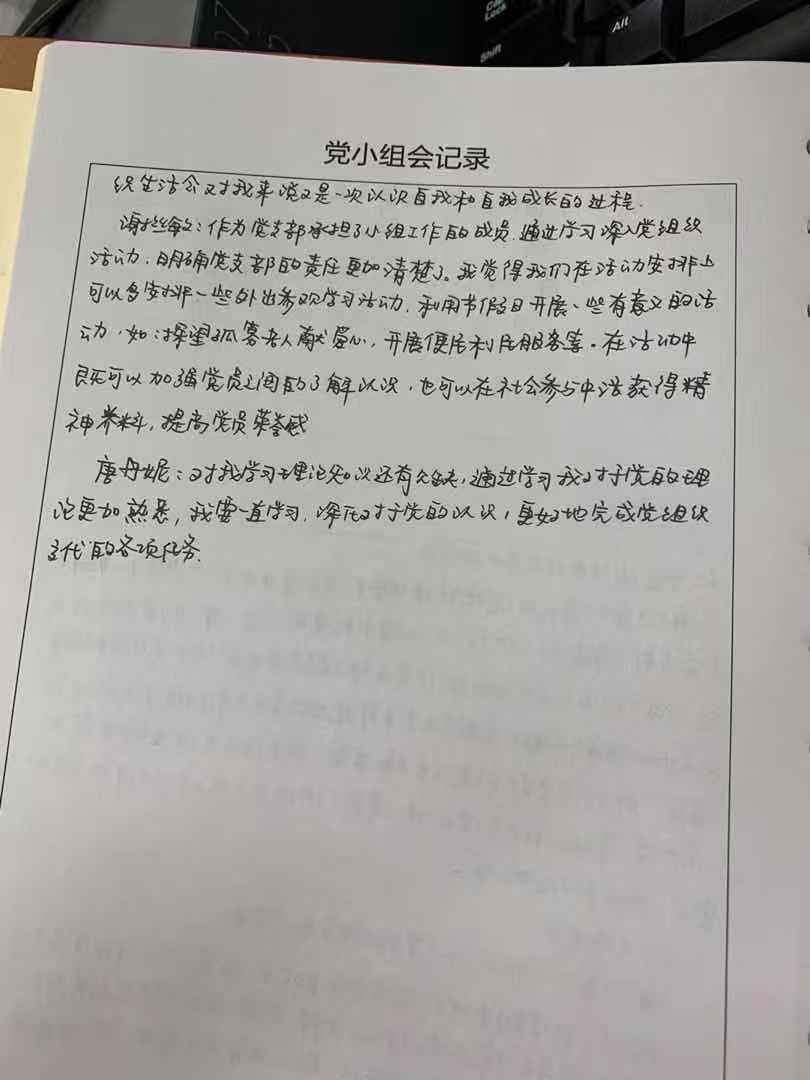 Caps Lock
Shift
Alt
党小组会记录
织生活会对我来说又是一次认识自我和自我成长的过程.
谢敏:作为党支部承担了小组工作的成员.通过学习深入党组织
活动,明确党支部的责任更加清楚了。我觉得我们在活动安排上
可以多安排一些外出参观学习活动,利用节假日开展一些有意义的活
动,如:探望孤寡老人献爱心,开展便民利民服务等。在活动中
既可以加强党员之间的了解认识,也可以在社会参与中获得精
神养料,提高党员荣誉感
唐丹妮:对我学习理论知识还有欠缺,通过学习我对于党的理
论更加熟悉,我要一直学习,深化对于党的认识,更好地完成党组织
交代的各项任务.